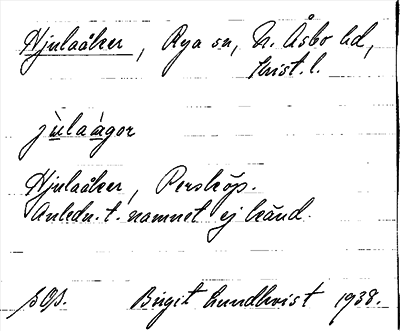 Hjulaåker, Rya sn, N. Åsbo hd,
Krist. l.
jùlaágor
Hjulaåker, Perstöp.
Anledn. t. namnet ej känd.
Birgit Lundkvist 1938.